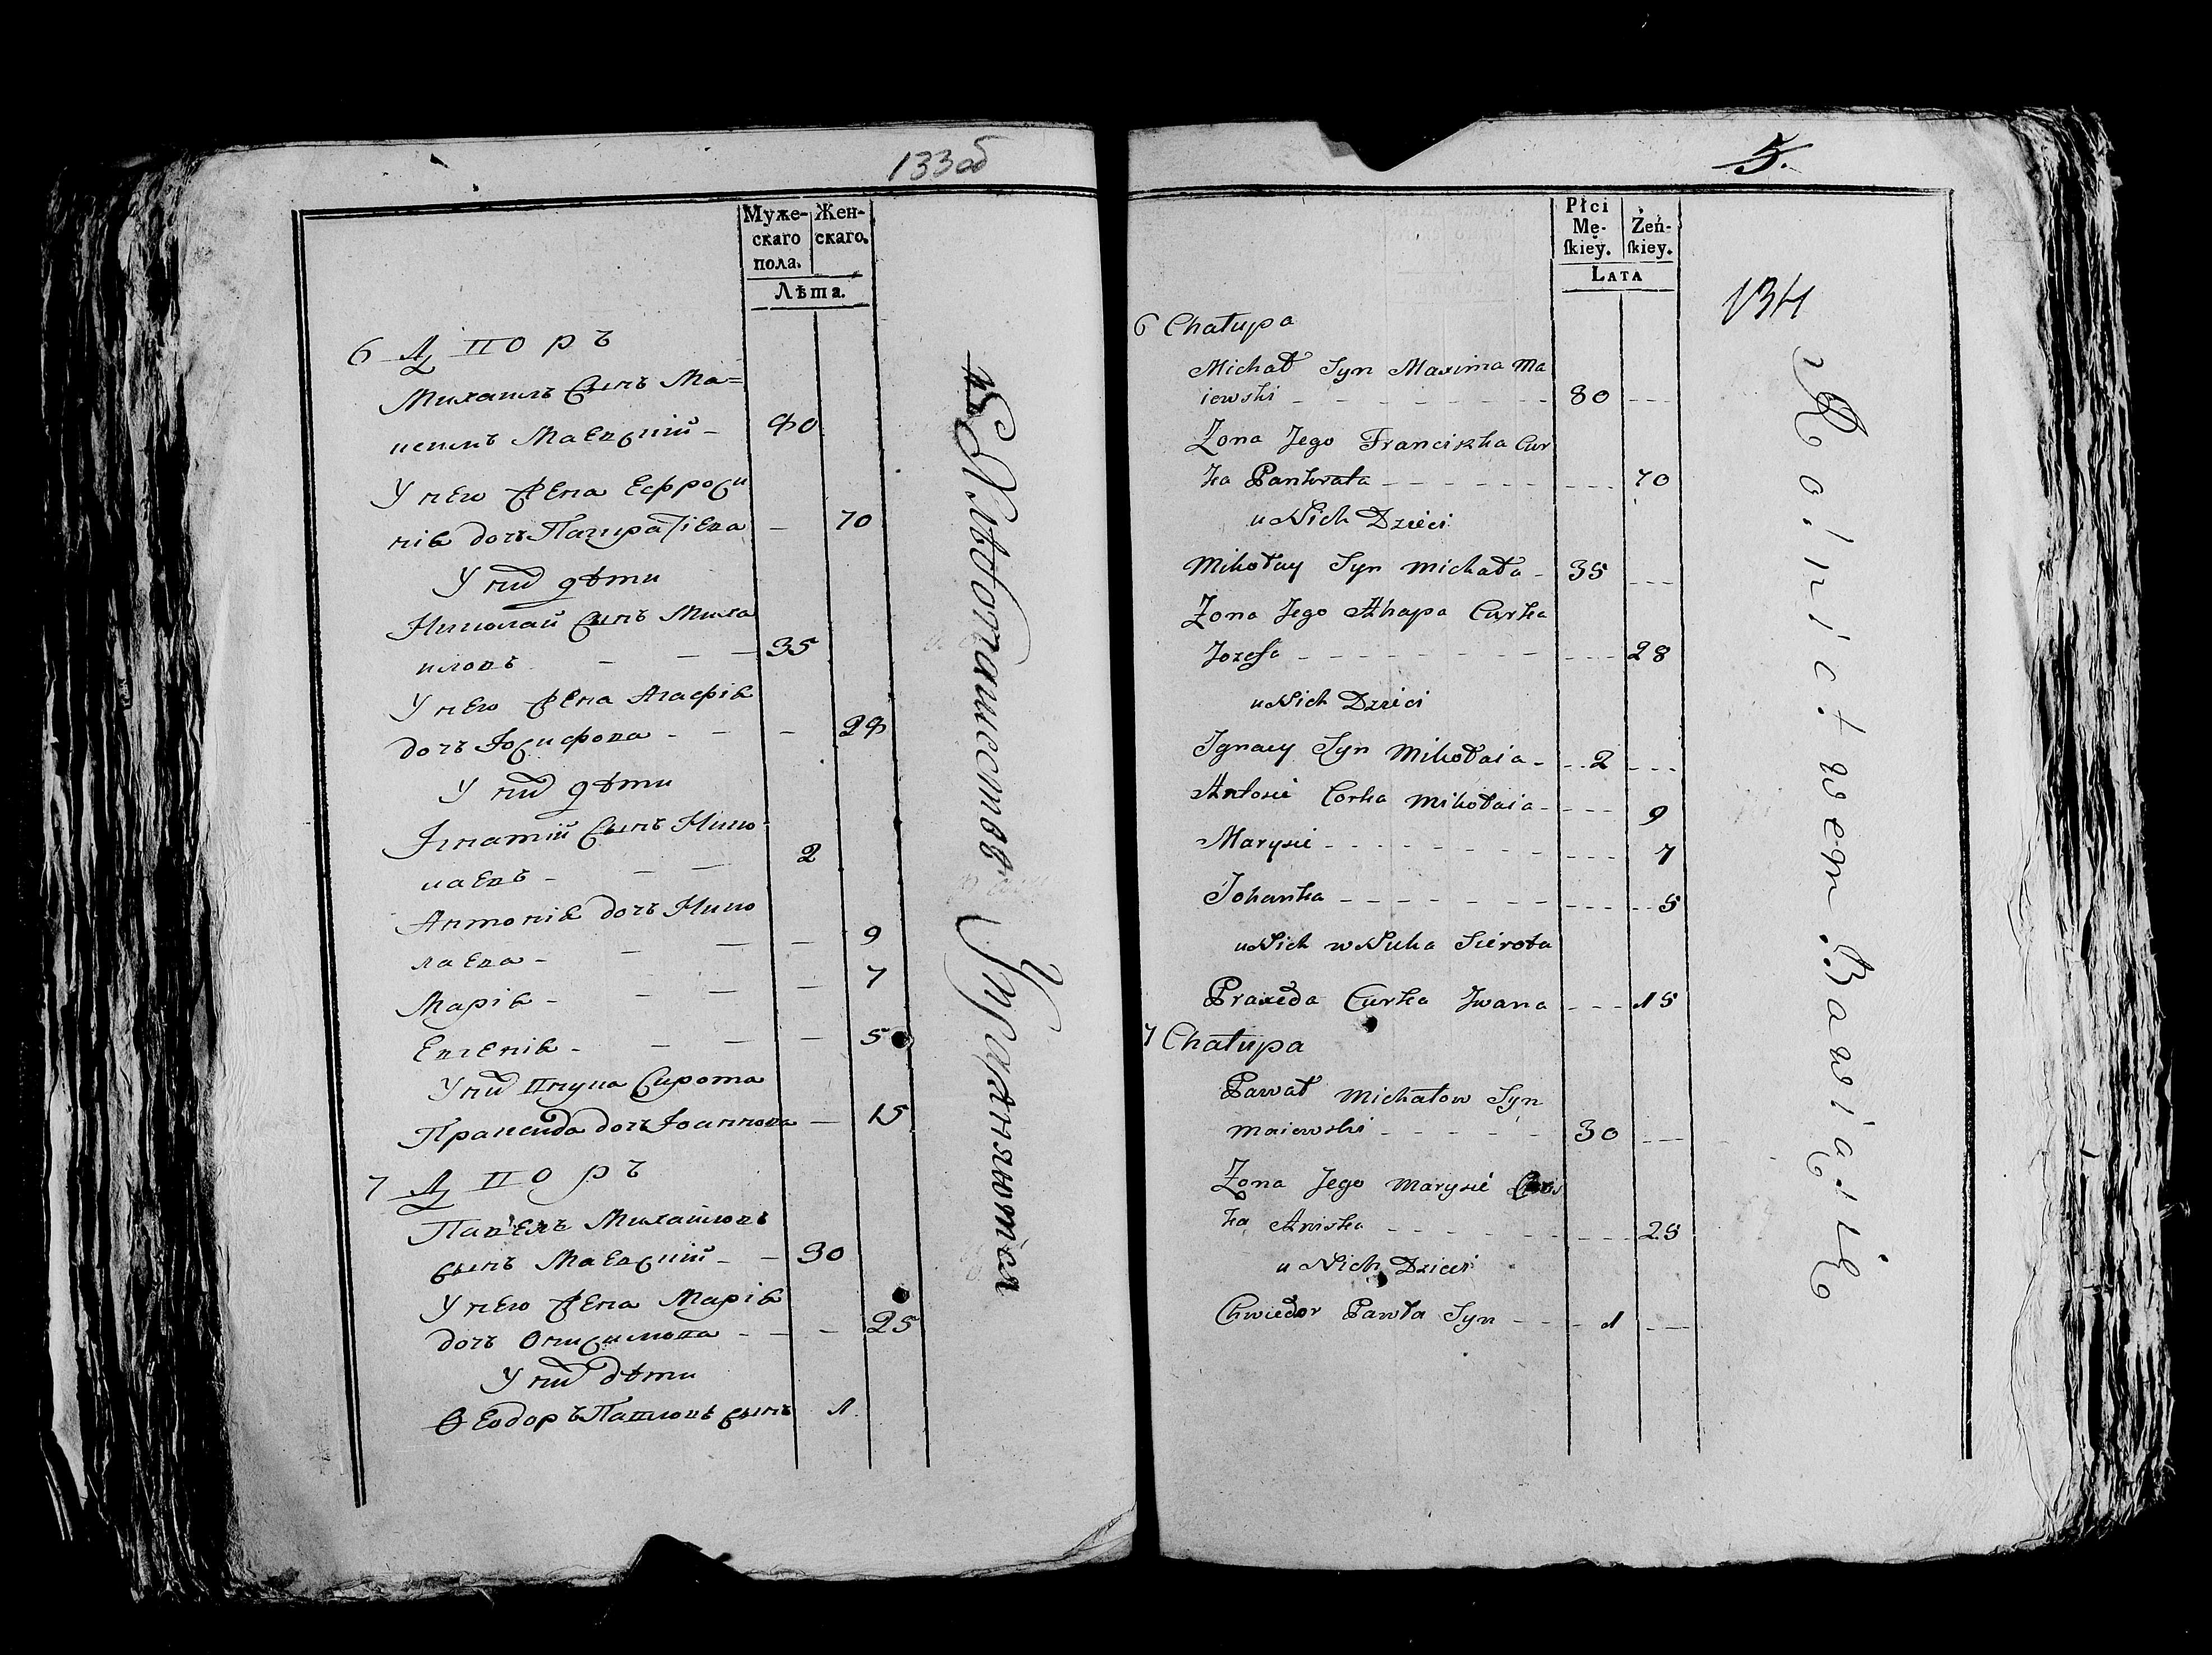 133об
Муже-
скаго
пола.
Жен-
скаго.
Лѣта.
6 Дворъ
Михаилъ Сынъ Ма=
ксимъ Маевскій - 80
У него жена Ефроси
нія дочъ Панкратіева - 70
У них дѣти
Николай Сынъ Миха
иловъ - - - 35
У него жена Агафія
дочъ Іосифова - - - 28
У них дѣти
Игнатій Сынъ Нико
лаевъ - - - 2
Антонія дочъ Нико
лаева - - - - 9
Марія - - - - 7
Евгенія - - - - 5
У них внука Сирота
Праксида дочъ Іоаннова - 15
7 Дворъ
Павелъ Михайловъ
сынъ Маевскій - - 30
У него жена Марія
дочъ Онисимова - - - 25
У них дѣти
Ѳеодоръ Павловъ сынъ 1
Хлѣбопашествомъ Упражняются
5.
134
Płci
Mę-
ſkiey.
Żeń-
ſkiey.
LATA
6 Chałupa
Michał Syn Maxima Ma
iewski - - - - - - - 80 - - -
Zona Jego Franciszka Cur
ka Pankrata - - - - - - - - - 70
u Nich Dzieci
Mikołay Syn Michała - 35 - - -
Zona Jego Ahapa Curka
Jozefa - - - - - - - - - - - 28
u Nich Dzieci
Ignacy Syn Mikołaia - - - 2 - - -
Antosie Corka Mikołaia - - - - 9
Marysie - - - - - - - - - - - 7
Johanka - - - - - - - - - - - 5
u Nich w Nuka Sierota
Praxeda Curka Iwana - - - 15
7 Chałupa
Pawał Michałow Syn
Maiewski - - - - - - 30 - - -
Zona Jego Marysie Cur
ka Aniska - - - - - - - - - - 25
u Nich Dzieci
Chwiedor Pawła Syn - - - 1 - - -
Rolnictwem Bawią się